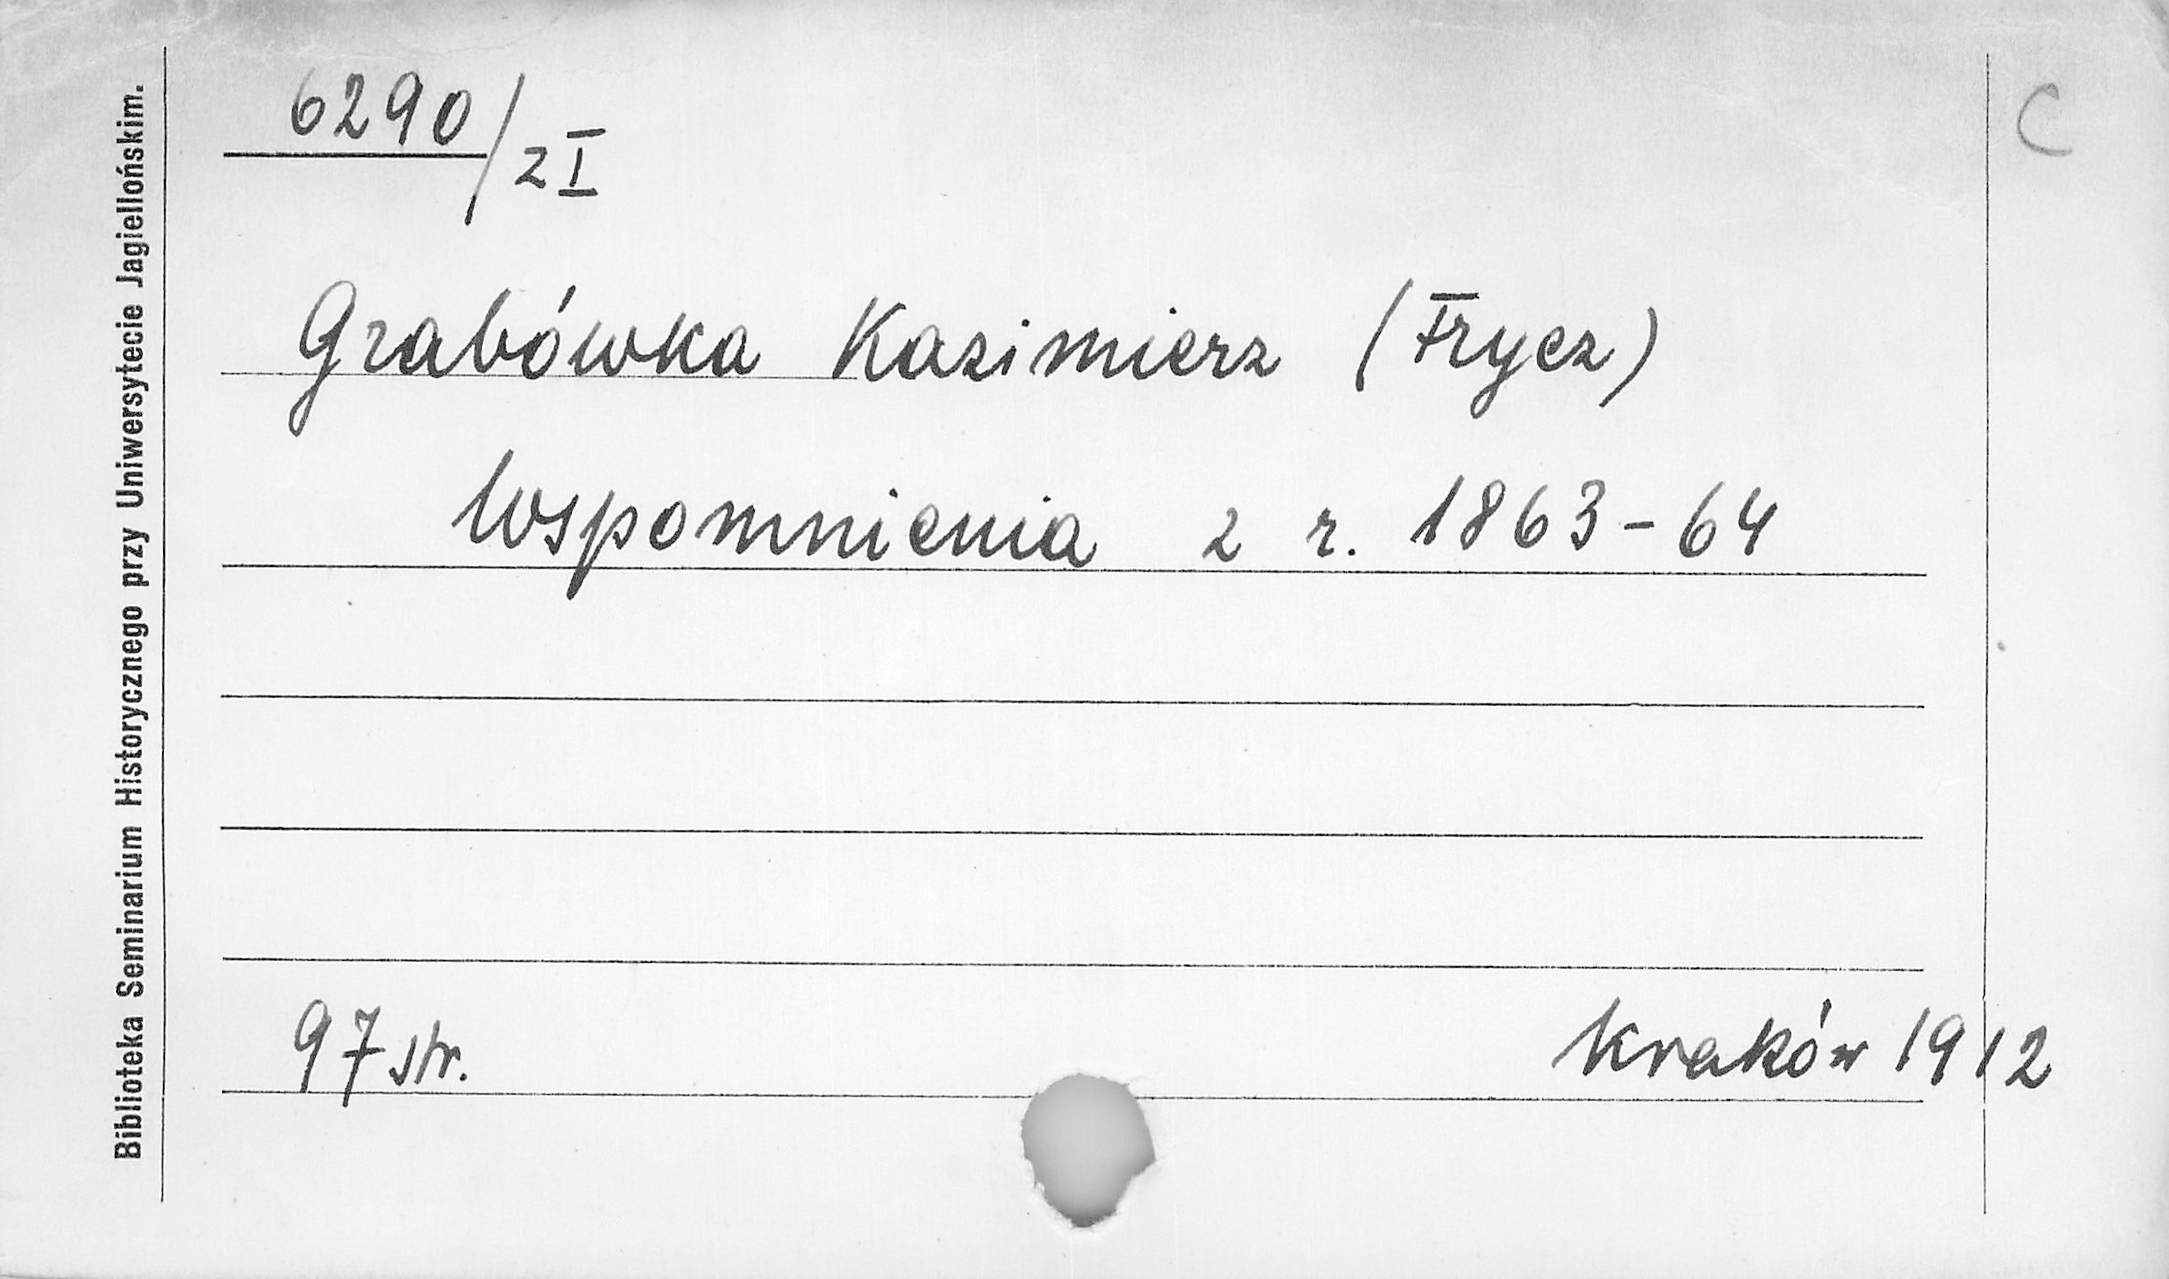 6290/z I
C
Grabówka Kazimierz (Frycz)
Wspomnienia z r. 1863-64
97 str.
Kraków 1912
Biblioteka Seminarium Historycznego przy Uniwersytecie Jagiellońskim.